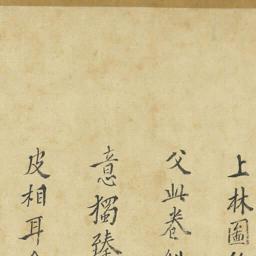 上林圖
父此卷
意獨臻
皮相耳